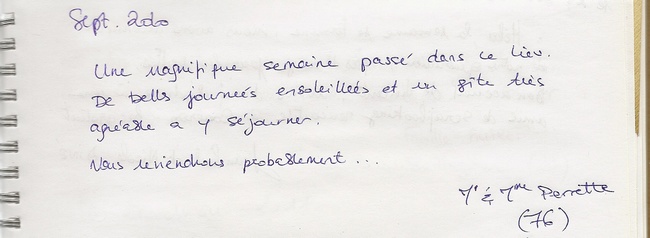 Sept. 2000
Une magnifique semaine passé dans ce lieu.
De bells journeés ensoleillées et un gîte très
agréable a y séjourner.
Nous reviendrons probablement ...
Mr & Mme Perrette
(76)